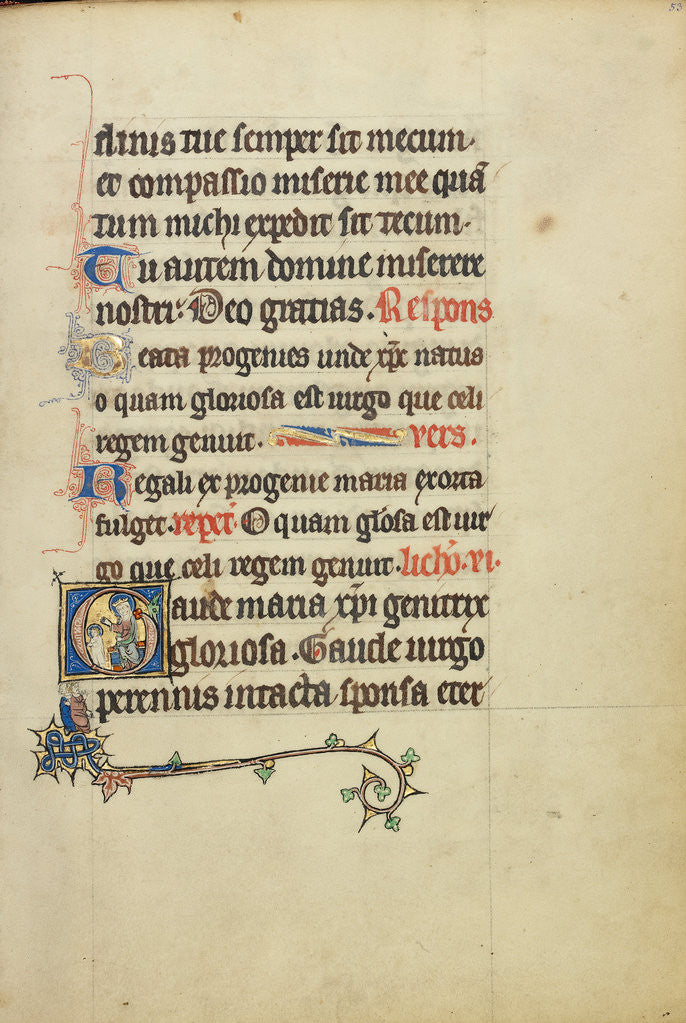 53
dinis tue semper sit mecum.
et compassio miserie mee quā
tum michi expedit sit tecum.
Tu autem domine miserere
nostri. Deo gratias. Respons
Beata progenies unde xp̄c natus
o quam gloriosa est uirgo que celi
regem genuit. vers.
Regali ex progenie maria exorta
fulget. repet. O quam gl̄osa est uir
go que celi regem genuit. licħo. vi.
Gaude maria xp̄i genitrix
gloriosa. Gaude uirgo
perennis intacta sponsa eter